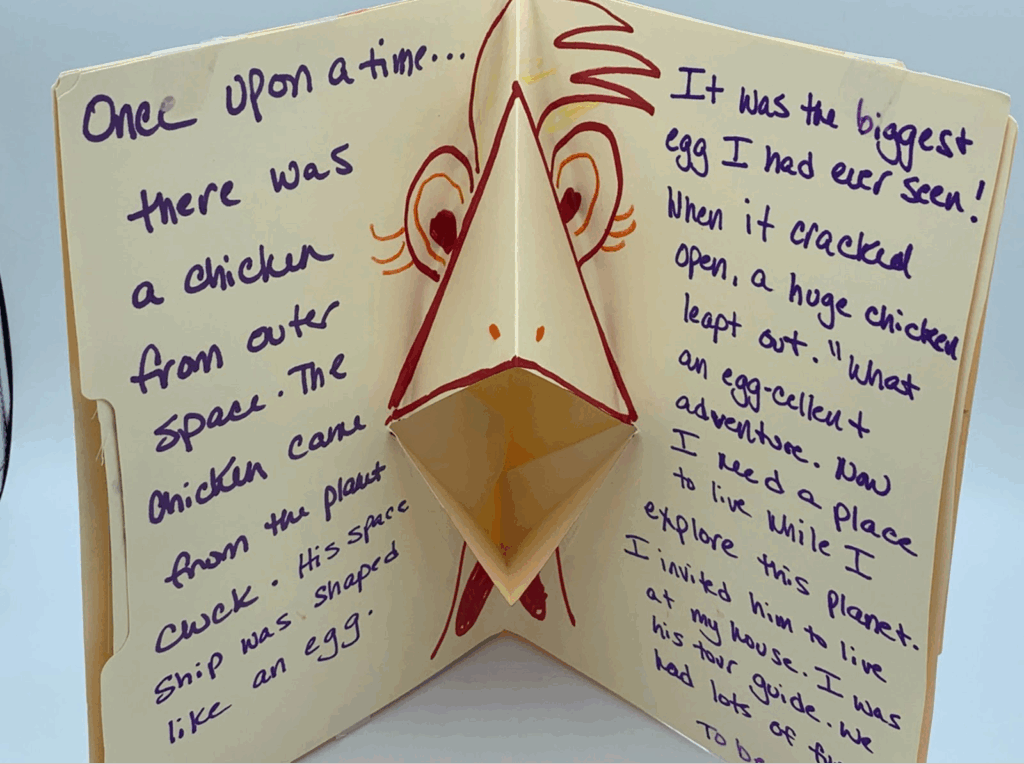 Once upon a time...
there was
a chicken
from outer
space. The
chicken came
from the planet
cluck. His space
ship was shaped
like an egg.
It was the biggest
egg I had ever seen!
When it cracked
open, a huge chicken
leapt out. "What
an egg-cellent
adventure. Now
I need a place
to live while I
explore this planet.
I invited him to live
at my house. I was
his tour guide. We
had lots of
To